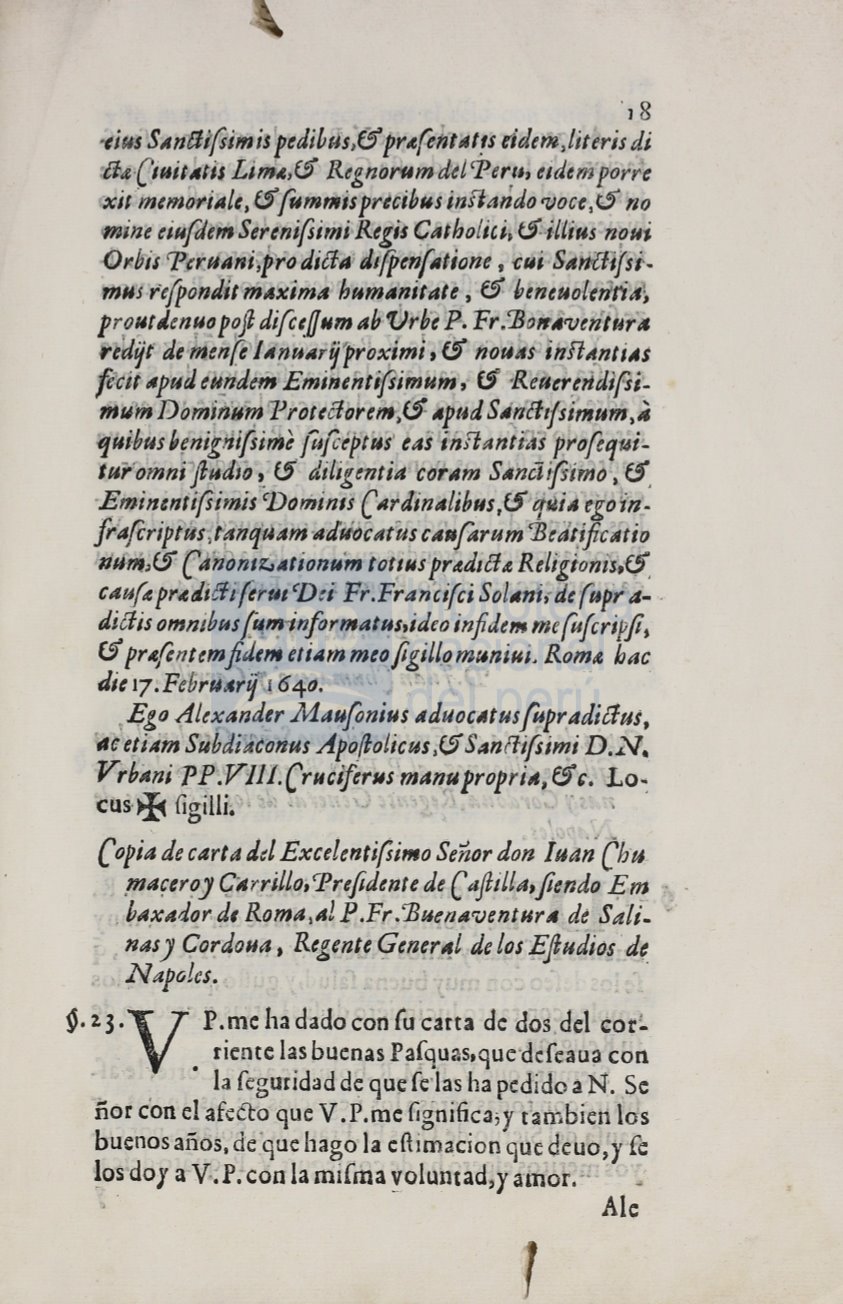 18
eius Sanctiſsimis pedibus,& præſentatis eidem,literis di
ctæ Ciuitatis Limæ,& Regnorum del Peru, eidem porre
xit memoriale, & ſummis precibus inſtando voce,& no
mine eiuſdem Sereniſsimi Regis Catholici, & illius noui
Orbis Peruani,pro dicta diſpenſatione , cui Sanctiſsi-
mus reſpondit maxima humanitate , & beneuolentia,
prout denuo poſt diſceſſum ab Vrbe P. Fr.Bonaventura
redijt de menſe Ianuarij proximi , & nouas inſtantias
fecit apud eundem Eminentiſsimum, & Reuerendiſsi-
mum Dominum Protectorem,& apud Sanctiſsimum,à
quibus benigniſsimè ſuſceptus eas inſtantias proſequi-
tur omni ſtudio , & diligentia coram Sanctiſsimo , &
Eminentiſsimis Dominis Cardinalibus,& quia ego in-
fraſcriptus,tanquam aduocatus cauſarum Beatificatio
num,& Canonizationum totius prædictæ Religionis,&
cauſæ prædicti ſerui Dei Fr.Franciſci Solani, de ſupr a-
dictis omnibus ſum informatus,ideo in fidem me ſuſcripſi,
& præſentem fidem etiam meo ſigillo muniui. Romæ hac
die 17.Februarij 1640.
Ego Alexander Mauſonius aduocatus ſupradictus,
ac etiam Subdiaconus Apoſtolicus,& Sanctiſsimi D.N.
Vrbani PP.VIII.Cruciferus manu propria,&c. Lo-
cus ✠ ſigilli.
Copia de carta del Excelentiſsimo Señor don Iuan Chu
maceroy Carrillo, Preſidente de Caſtilla, ſiendo Em
baxador de Roma,al P.Fr.Buenaventura de Sali-
nas y Cordoua , Regente General de los Eſtudios de
Napoles.
§.23. V. P.me ha dado con ſu carta de dos del cor-
riente las buenas Paſquas,que deſeaua con
la ſeguridad de que ſe las ha pedido a N. Se
ñor con el afecto que V.P.me ſignifica,y tambien los
buenos años, de que hago la eſtimacion que deuo,y ſe
los doy a V.P.con la miſma voluntad,y amor.
Ale
del perú